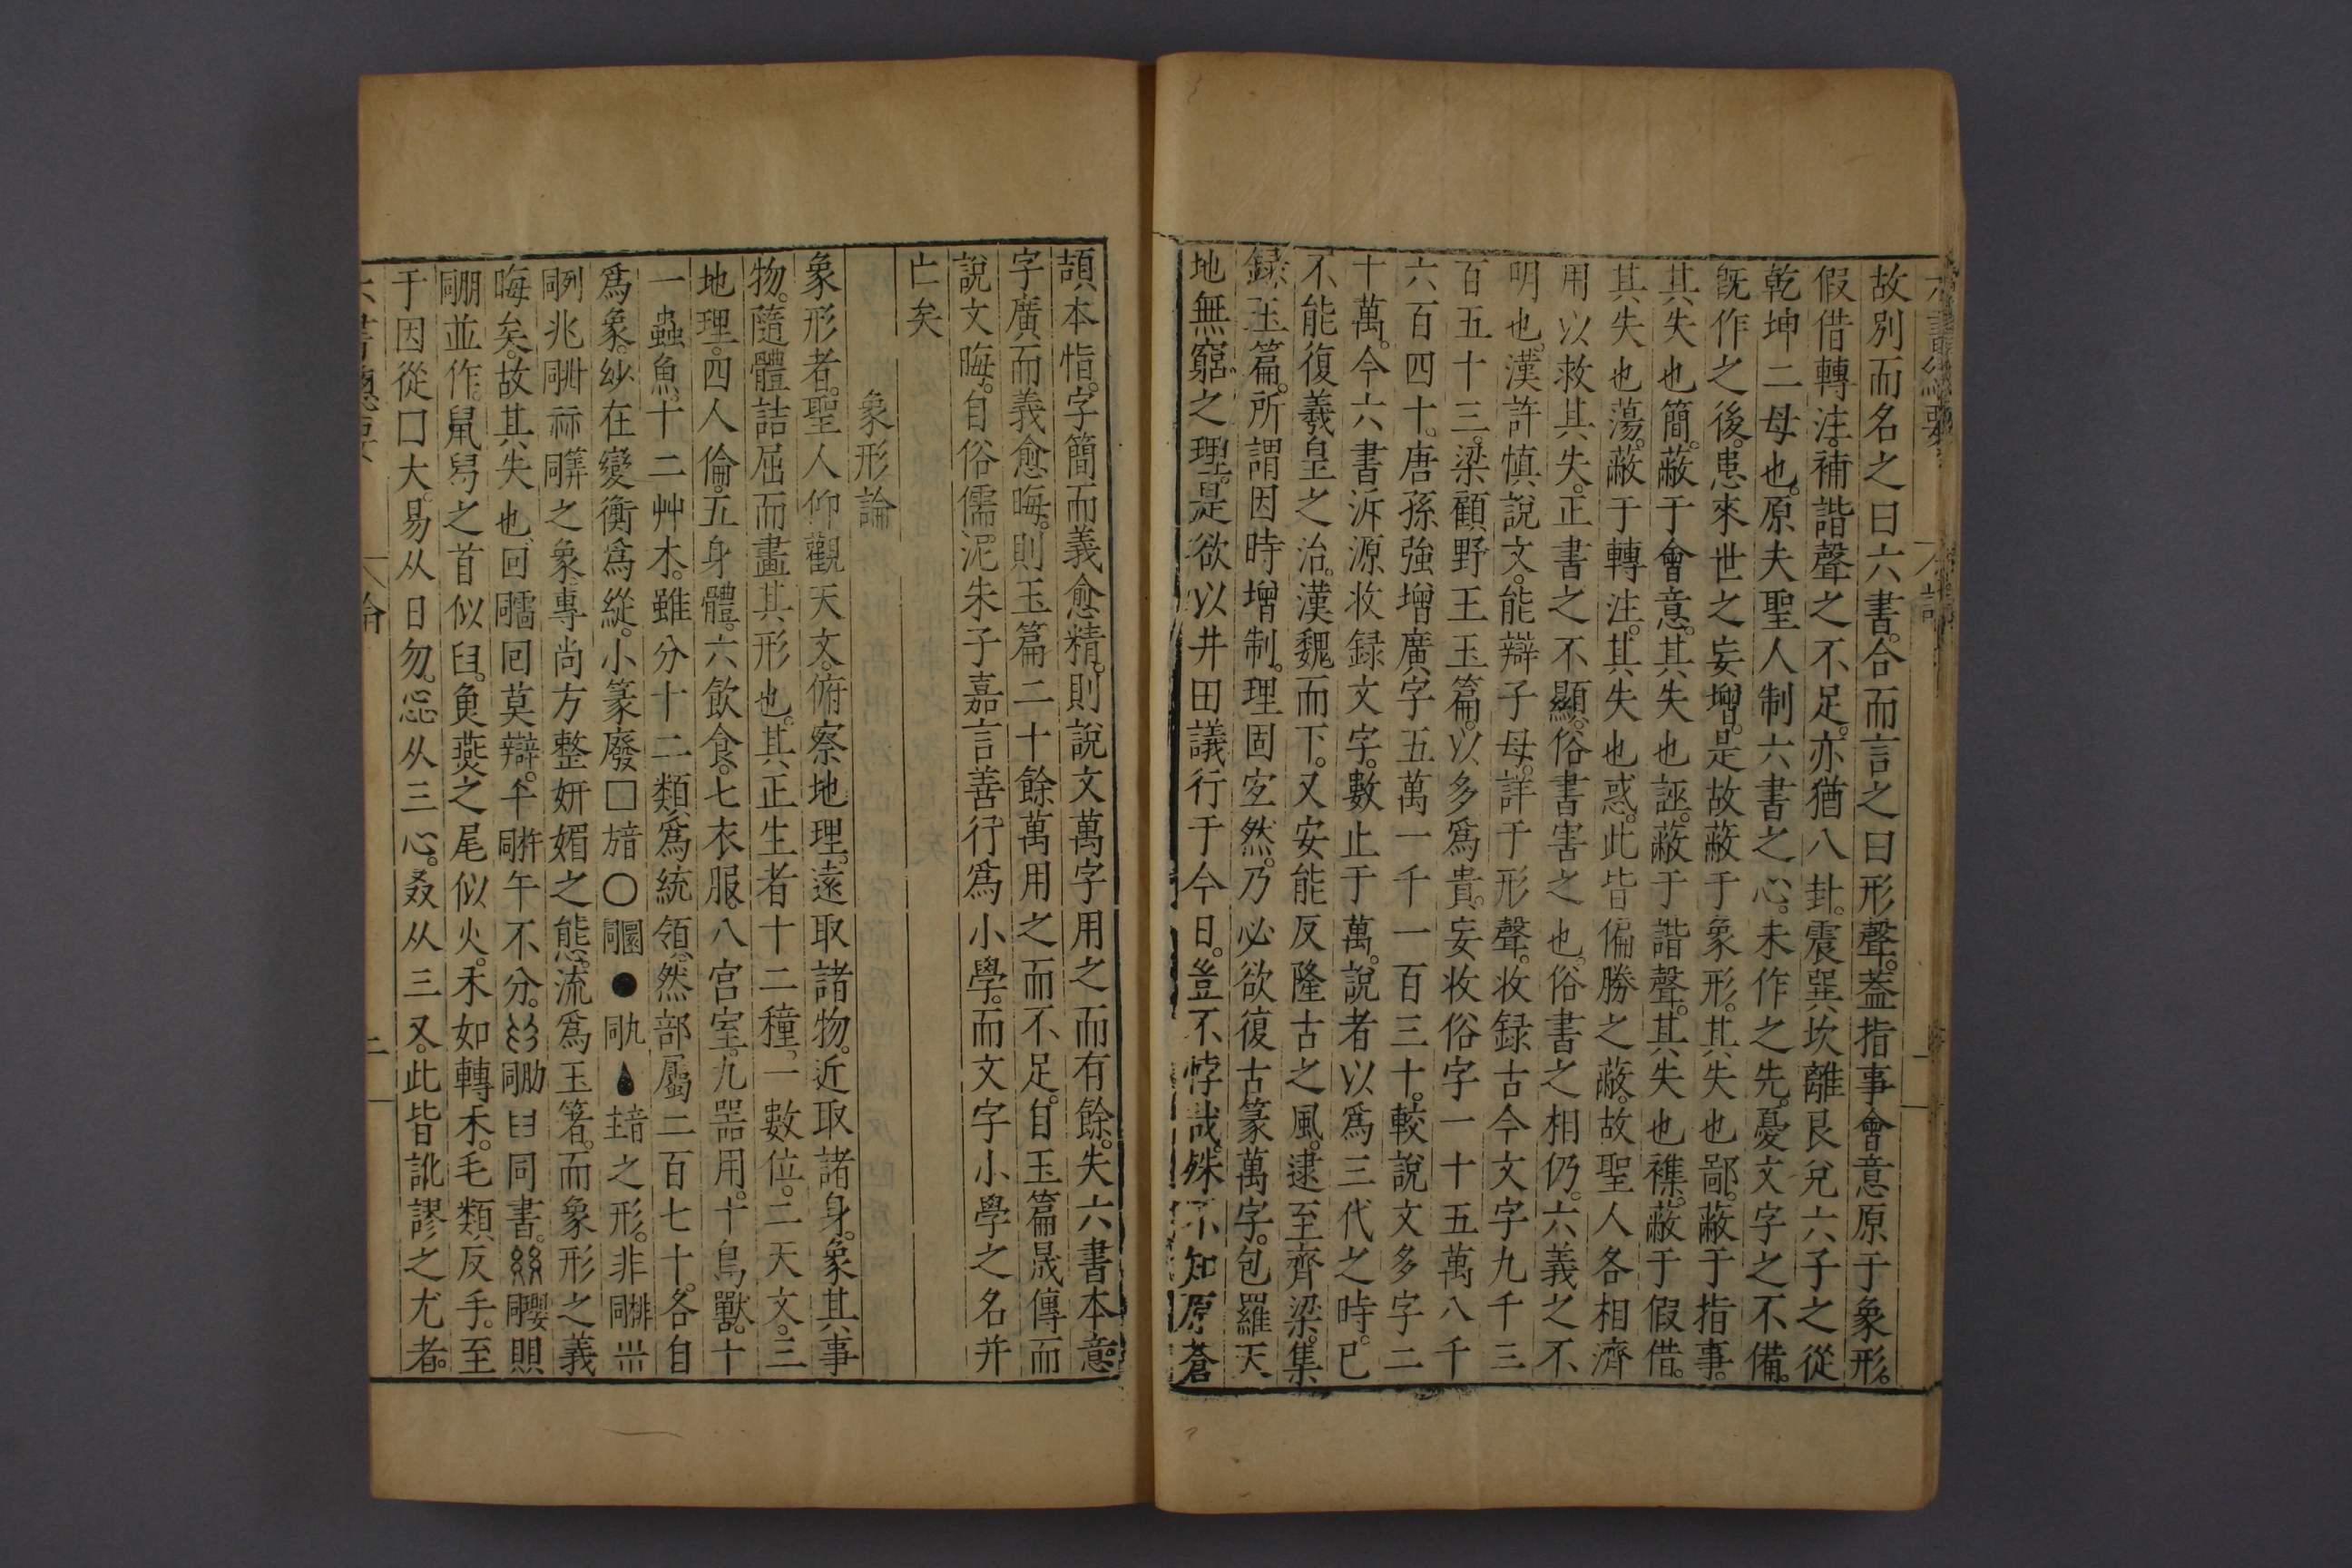 六書總要
故別而名之曰六書。合而言之曰形聲。蓋指事會意原于象形。
假借轉注。補諧聲之不足。亦猶八卦。震巽坎離艮兌六子之從
乾坤二母也。原夫聖人制六書之心。未作之先。憂文字之不備。
旣作之後。患來世之妄增。是故蔽于象形。其失也鄙。蔽于指事。
其失也簡。蔽于會意。其失也誣。蔽于諧聲。其失也襍。蔽于假借。
其失也蕩。蔽于轉注。其失也惑。此皆偏勝之蔽。故聖人各相濟
用以救其失。正書之不顯。俗書害之也。俗書之相仍。六義之不
明也。漢許慎說文。能辯子母。詳于形聲。收録古今文字九千三
百五十三。梁顧野王玉篇。以多爲貴。妄收俗字一十五萬八千
六百四十。唐孫強增廣字五萬一千一百三十。較說文多字二
十萬。今六書泝源收録文字。數止于萬。說者以爲三代之時。已
不能復羲皇之治。漢魏而下。又安能反隆古之風。逮至齊梁。集
録玉篇。所謂因時增制。理固宐然。乃必欲復古篆萬字。包羅天
地無窮之理。是欲以井田議行于今日。豈不悖哉。殊不知原蒼
頡本恉。字簡而義愈精。則說文萬字用之而有餘。失六書本意
字廣而義愈晦。則玉篇二十餘萬用之而不足。自玉篇晟傳而
說文晦。自俗儒泥朱子嘉言善行。爲小學。而文字小學之名并
亡矣
象形論
象形者。聖人仰觀天文。俯察地理。遠取諸物。近取諸身。象其事
物。隨體詰屈而畫其形也。其正生者十二種。一數位。二天文。三
地理。四人倫。五身體。六飲食。七衣服。八宫室。九噐用。十鳥獸。十
一蟲魚。十二艸木。雖分十二類。爲統領。然部屬二百七十。各自
爲象。紗在變衡爲縱。小篆廢□○●之形。非
兆之象。專尚方整姸媚之態。流爲玉箸。而象形之義
晦矣。故其失也。回囘莫辯。午不分。同書。
並作。鼠舄之首似臼。魚燕之尾似火。禾如轉禾。毛類反手。至
于因從囗大。易从日勿。惢从三心。叒从三又。此皆訛謬之尤者。
六書總要
論
二